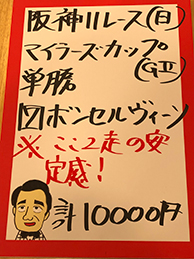 阪神11レース(日)
マイラーズ・カップ
(GⅡ)
単勝
⑦ボンセルヴィーソ
※ここ2走の安
定感!
計10000円